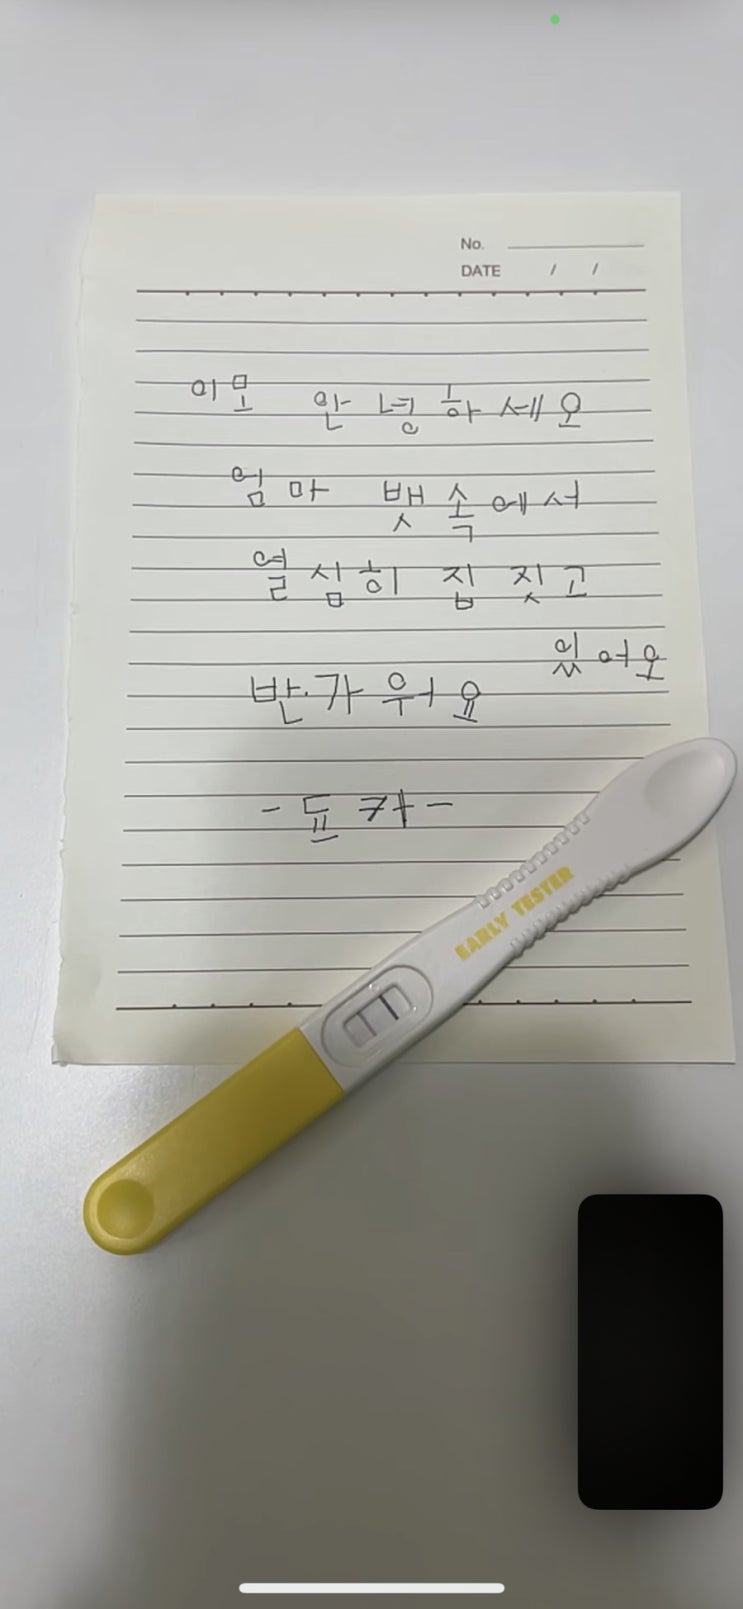 No.
DATE / /
이모 안녕하세오
엄마 뱃속에서
열심히 집 짓고
있어오
반가워요
- 됴카 -
EARLY TESTER